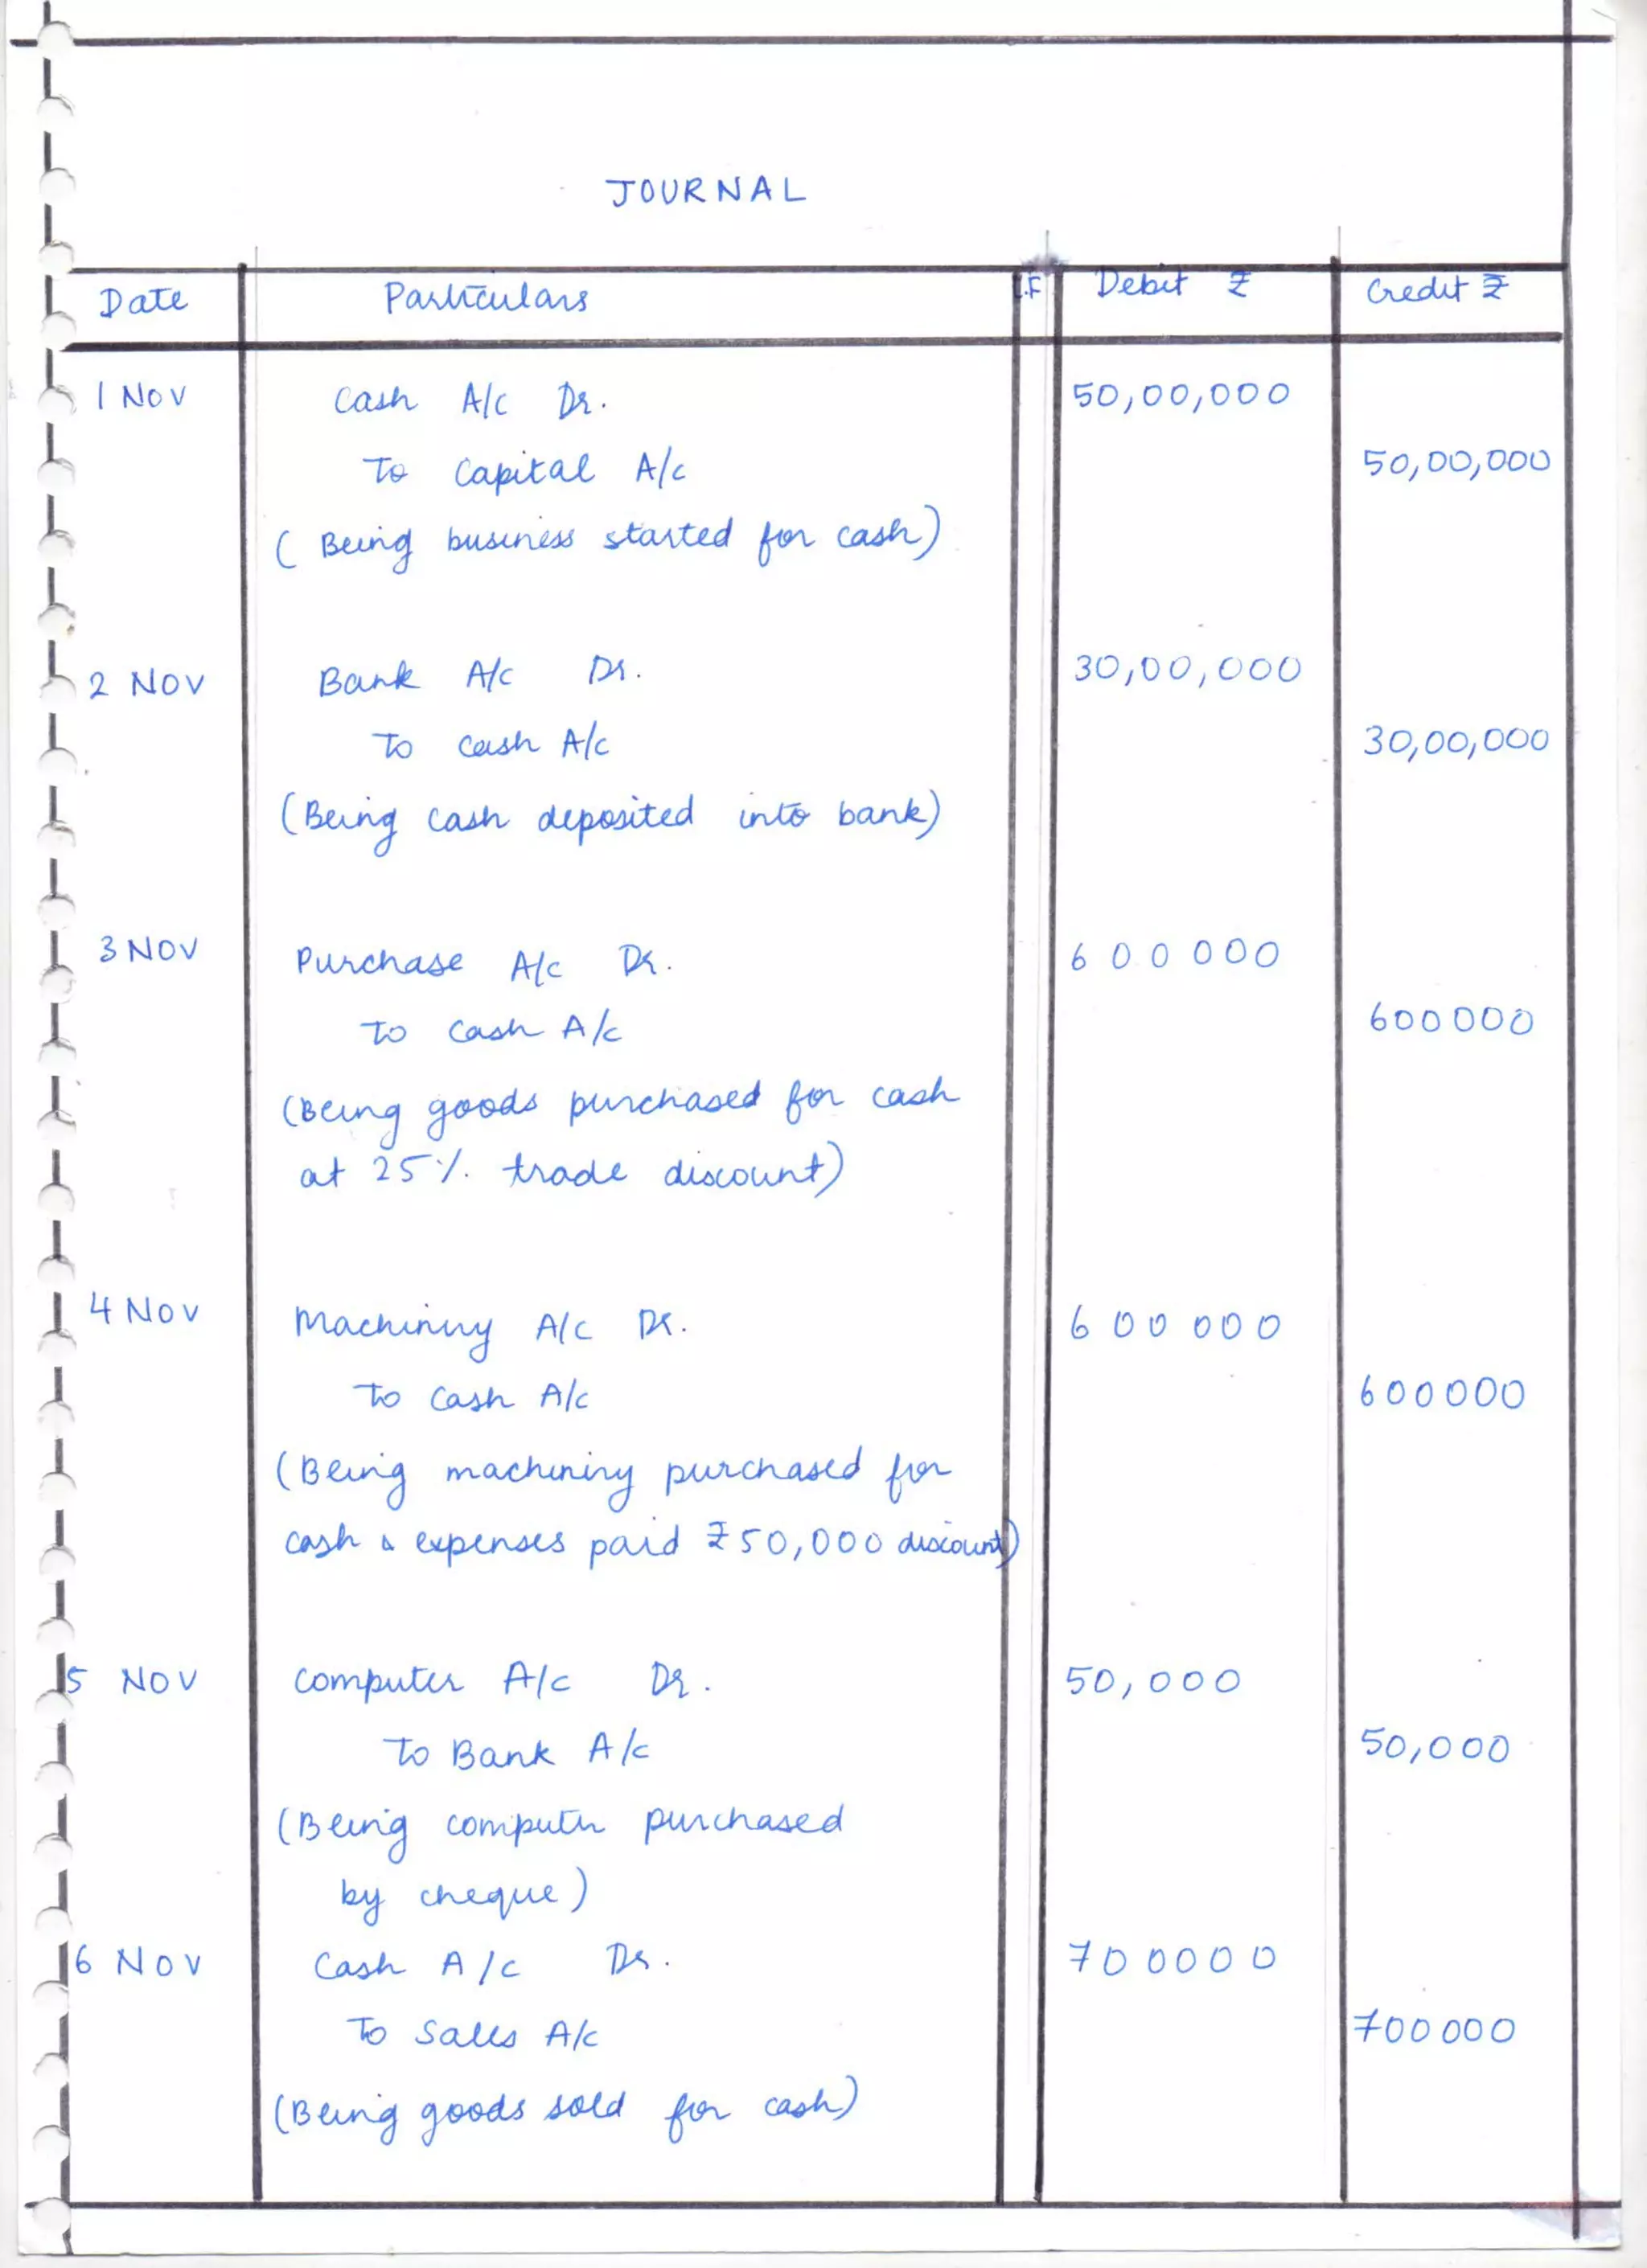 JOURNAL
Date Particulars L.F Debit ₹ Credit ₹
1 Nov Cash A/c Dr. 50,00,000
To Capital A/c 50,00,000
( Being business started for cash)
2 Nov Bank A/c Dr. 30,00,000
To cash A/c 30,00,000
(Being cash deposited into bank)
3 Nov Purchase A/c Dr. 600000
To cash A/c 600000
(Being goods purchased for cash
at 25% trade discount)
4 Nov Machinery A/c Dr. 600000
To Cash A/c 600000
(Being machinery purchased for
cash & expenses paid ₹50,000 discount)
5 Nov Computer A/c Dr. 50,000
To Bank A/c 50,000
(Being computer purchased
by cheque)
6 Nov Cash A/c Dr. 700000
To Sales A/c 700000
(Being goods sold for cash)